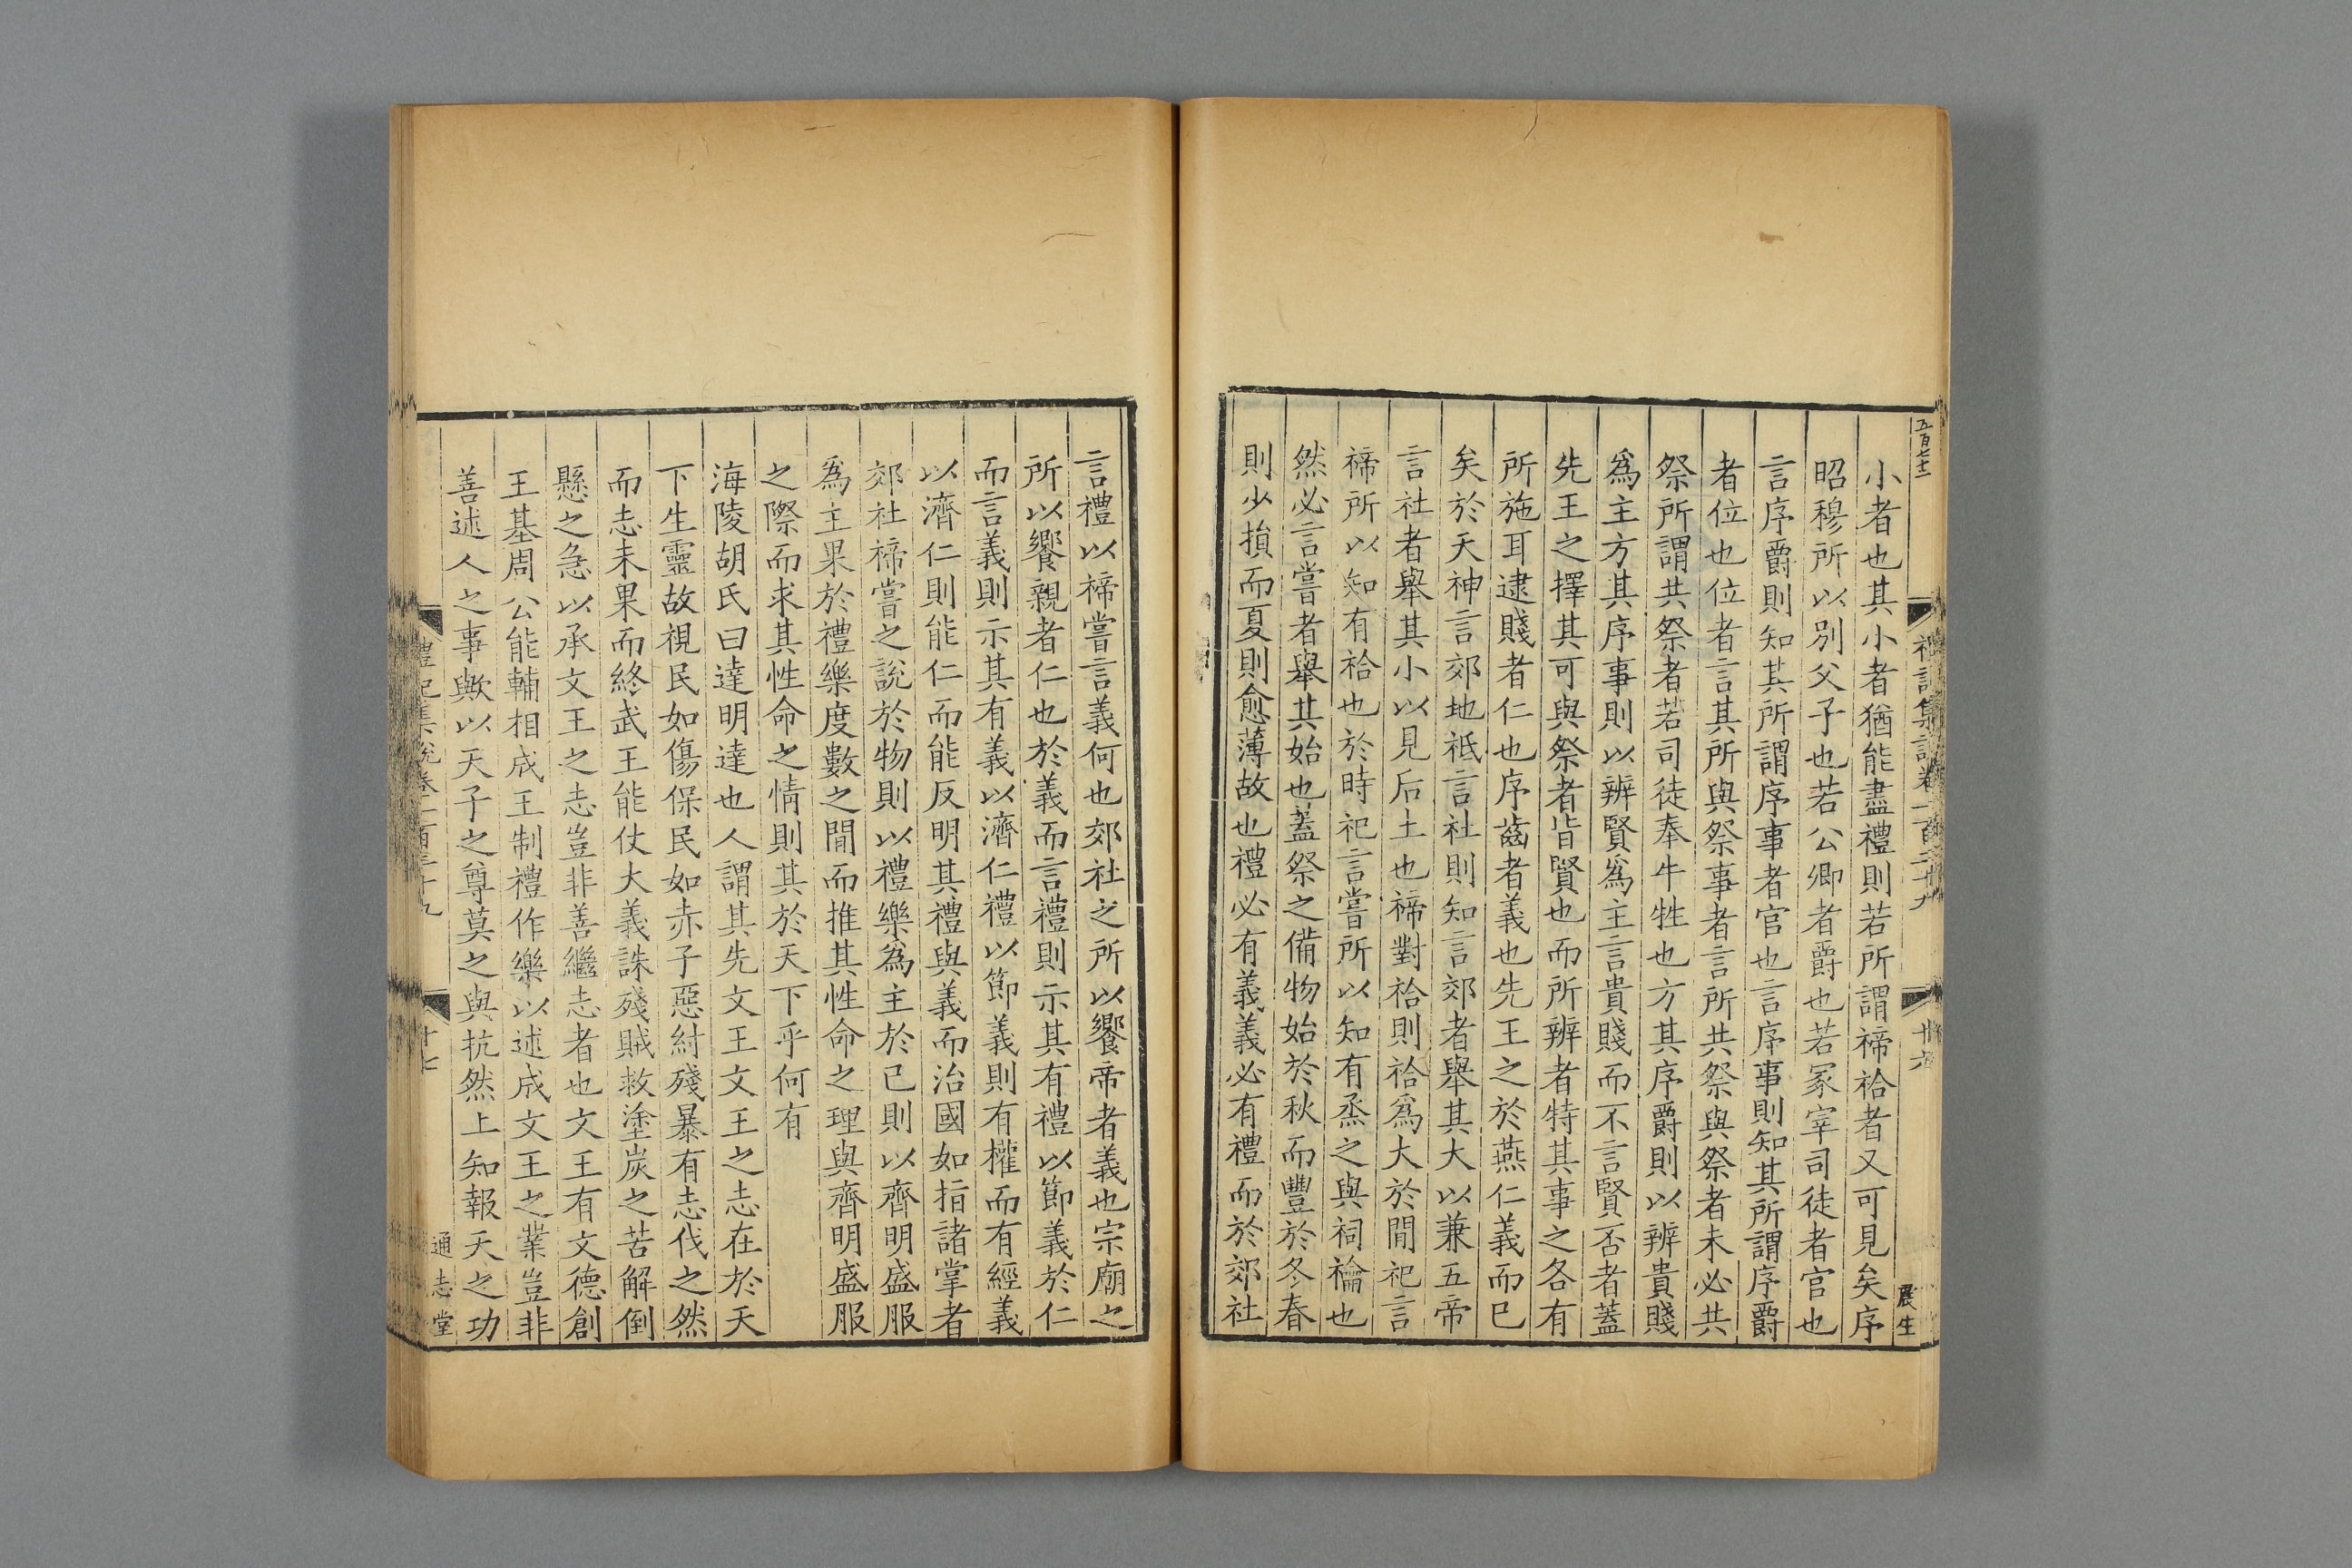 五百七十二
小者也其小者猶能盡禮則若所謂禘祫者又可見矣序
昭穆所以別父子也若公卿者爵也若冢宰司徒者官也
言序爵則知其所謂序事者官也言序事則知其所謂序爵
者位也位者言其所與祭事者言所共祭與祭者未必共
祭所謂共祭者若司徒奉牛牲也方其序爵則以辨貴賤
爲主方其序事則以辨賢爲主言貴賤而不言賢否者蓋
先王之擇其可與祭者皆賢也而所辨者特其事之各有
所施耳逮賤者仁也序齒者義也先王之於燕仁義而已
矣於天神言郊地祇言社則知言郊者舉其大以兼五帝
言社者舉其小以見后土也禘對祫則祫爲大於間祀言
禘所以知有祫也於時祀言嘗所以知有烝之與祠禴也
然必言嘗者舉其始也蓋祭之備物始於秋而豐於冬春
則少損而夏則愈薄故也禮必有義義必有禮而於郊社
言禮以禘嘗言義何也郊社之所以饗帝者義也宗廟之
所以饗親者仁也於義而言禮則示其有禮以節義於仁
而言義則示其有義以濟仁禮以節義則有權而有經義
以濟仁則能仁而能反明其禮與義而治國如指諸掌者
郊社禘嘗之說於物則以禮樂爲主於己則以齊明盛服
爲主果於禮樂度數之間而推其性命之理與齊明盛服
之際而求其性命之情則其於天下乎何有
海陵胡氏曰達明達也人謂其先文王文王之志在於天
下生靈故視民如傷保民如赤子惡紂殘暴有志伐之然
而志未果而終武王能仗大義誅殘賊救塗炭之苦解倒
懸之急以承文王之志豈非善繼志者也文王有文德創
王基周公能輔相成王制禮作樂以述成文王之業豈非
善述人之事歟以天子之尊莫之與抗然上知報天之功
禮記集說卷一百二十九
十七
通志堂